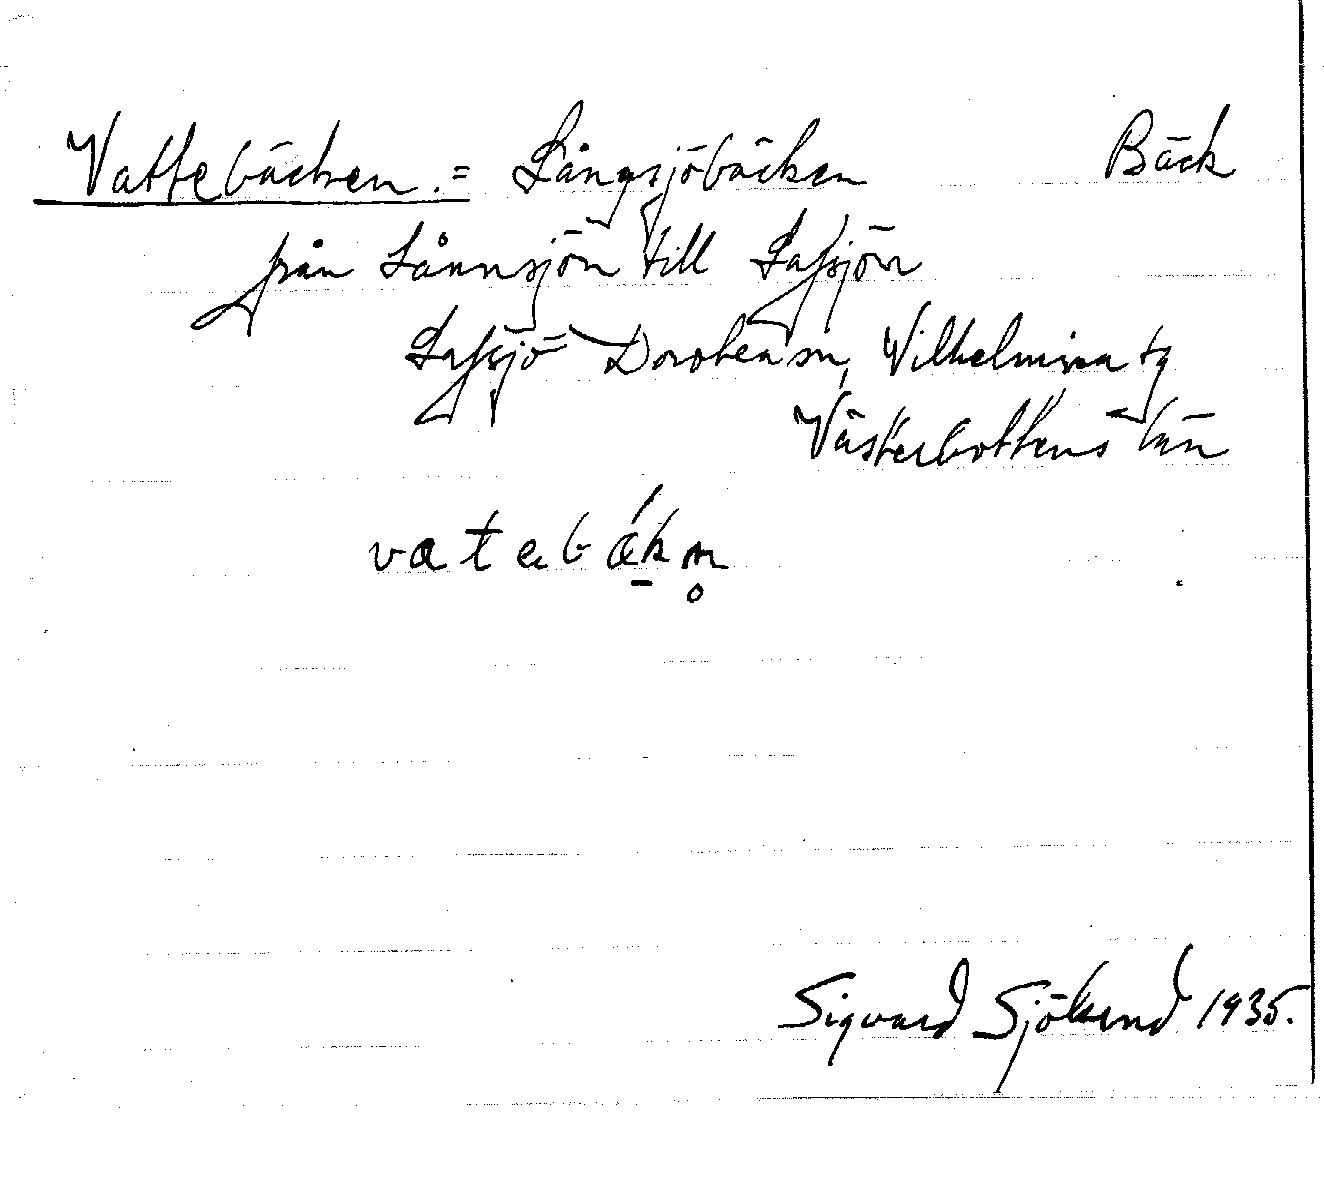 Vattebäcken. = Långsjöbäcken Bäck
från Lånnsjön till Lafsjön
Lafsjö Dorotea sn, Vilhelmina tg
Västerbottens län
vatebäkn̥
Sigvard Sjölund 1935.